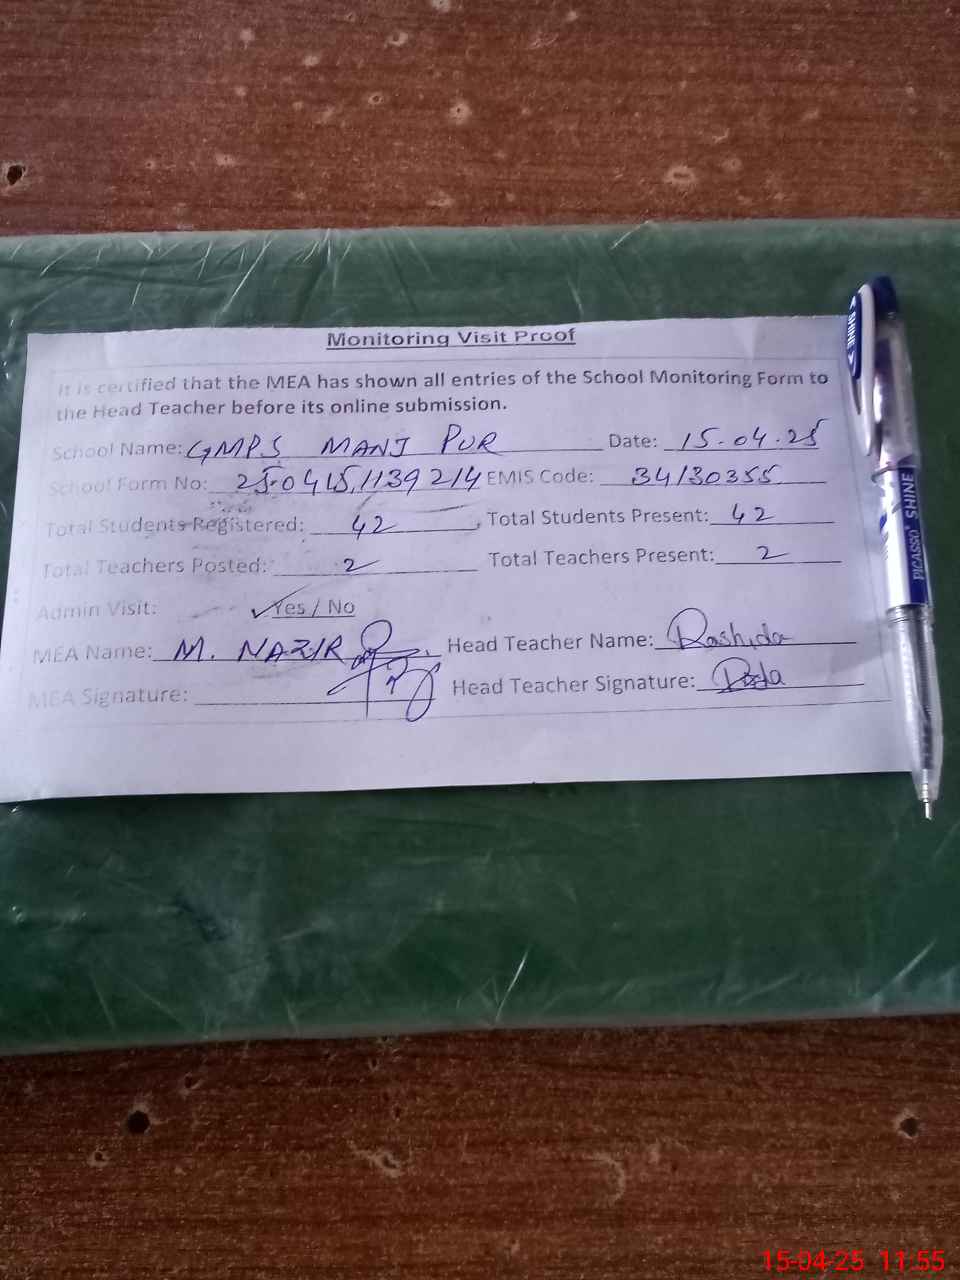 Monitoring Visit Proof
It is certified that the MEA has shown all entries of the School Monitoring Form to
the Head Teacher before its online submission.
School Name: GMPS MANJ PUR Date: 15.04.25
School Form No: 25.0415,1139214 EMIS Code: 34130355
Total Students Registered: 42 Total Students Present: 42
Total Teachers Posted: 2 Total Teachers Present: 2
Admin Visit: ✓Yes / No
MEA Name: M. NAZIR Head Teacher Name: Rashida
MEA Signature: Head Teacher Signature:
SHINE
PICASSO SHINE
15-04-25 11:55